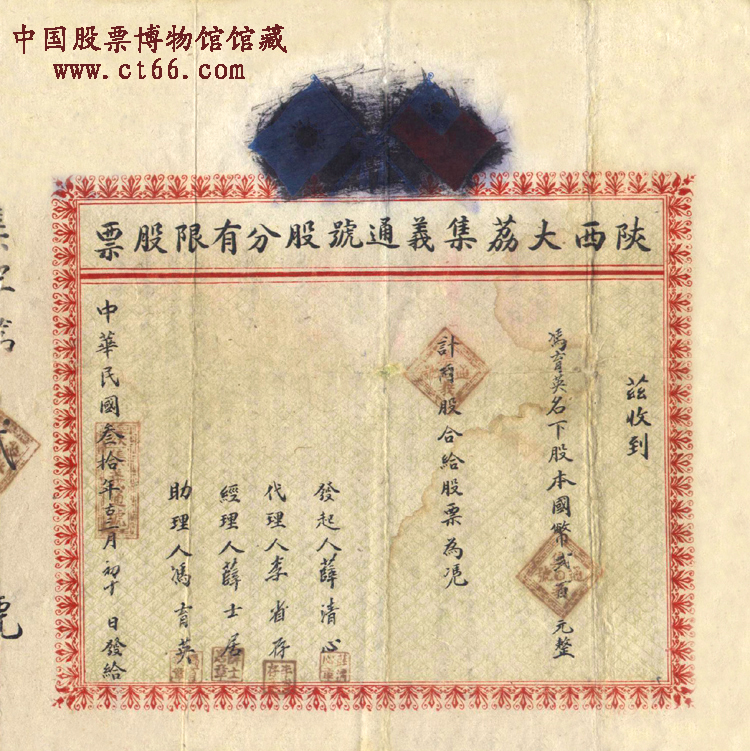 中国股票博物馆馆藏
www.ct66.com
陝西大荔集義通號股分有限股票
茲收到
馮育英名下股本國幣貳百元整
計貳股合給股票為凴
發起人薛清心
代理人李省存
經理人薛士居
助理人馮育英
中華民國叁拾年古三月初十日發給